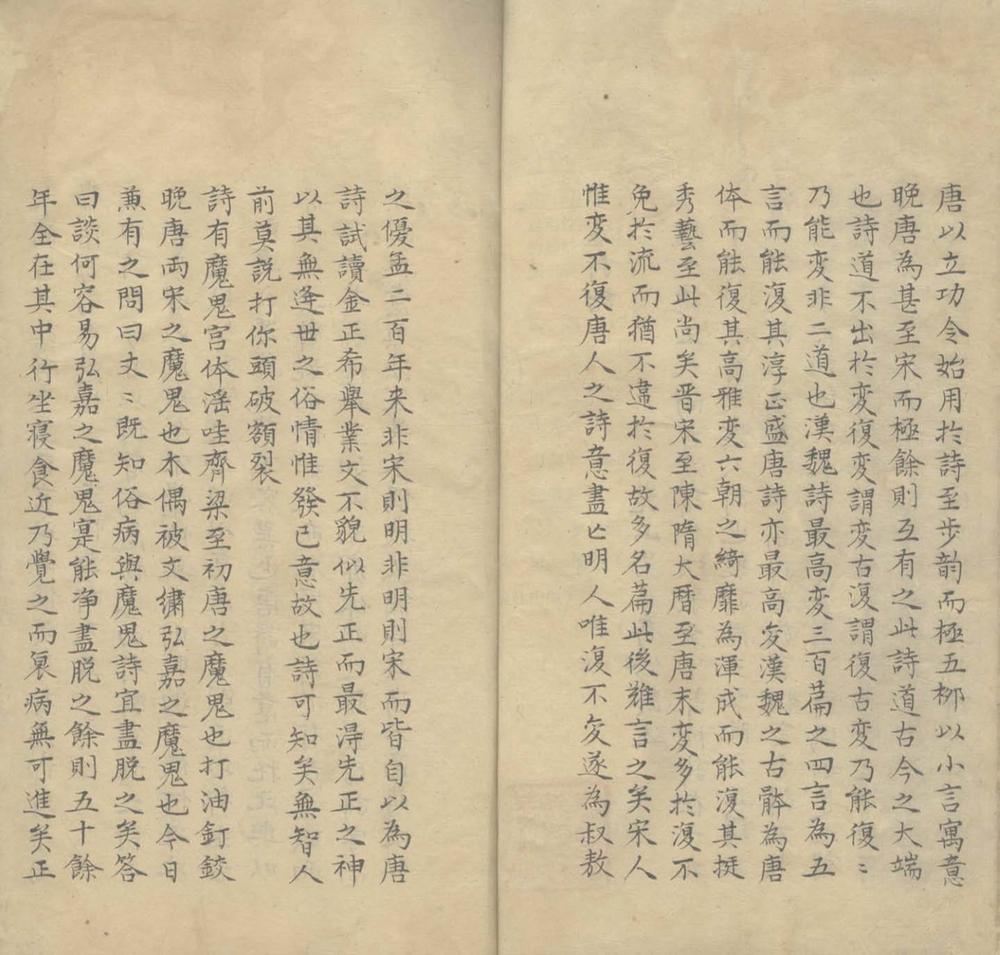 唐以立功令始用扵詩至步韵而極五栁以小言寓意
晚唐為甚至宋而極餘則互有之此詩道古今之大端
也詩道不出扵変復変謂変古復謂復古変乃能復〻
乃能変非二道也漢魏詩最高変三百萹之四言為五
言而能復其淳正盛唐詩亦最高変漢魏之古骵為唐
体而能復其高雅変六朝之綺靡為渾成而能復其挺
秀藝至此尚矣晋宋至陳隋大暦至唐末変多扵復不
免扵流而猶不違扵復故多名萹此後難言之矣宋人
惟変不復唐人之詩意盡亡明人唯復不変遂為叔敖
之優孟二百年来非宋則明非明則宋而皆自以為唐
詩試讀金正希舉業文不貌似先正而最淂先正之神
以其無逢世之俗情惟發已意故也詩可知矣無智人
前莫説打你頭破額裂
詩有魔鬼宫体滛哇齊梁至初唐之魔鬼也打油釘鉸
晚唐両宋之魔鬼也木偶被文繡弘嘉之魔鬼也今日
蕉有之問曰丈〻既知俗病與魔鬼詩宜盡脱之矣答
曰談何容易弘嘉之魔鬼寔能净盡脱之餘則五十餘
年全在其中行坐寝食近乃覺之而衰病無可進矣正